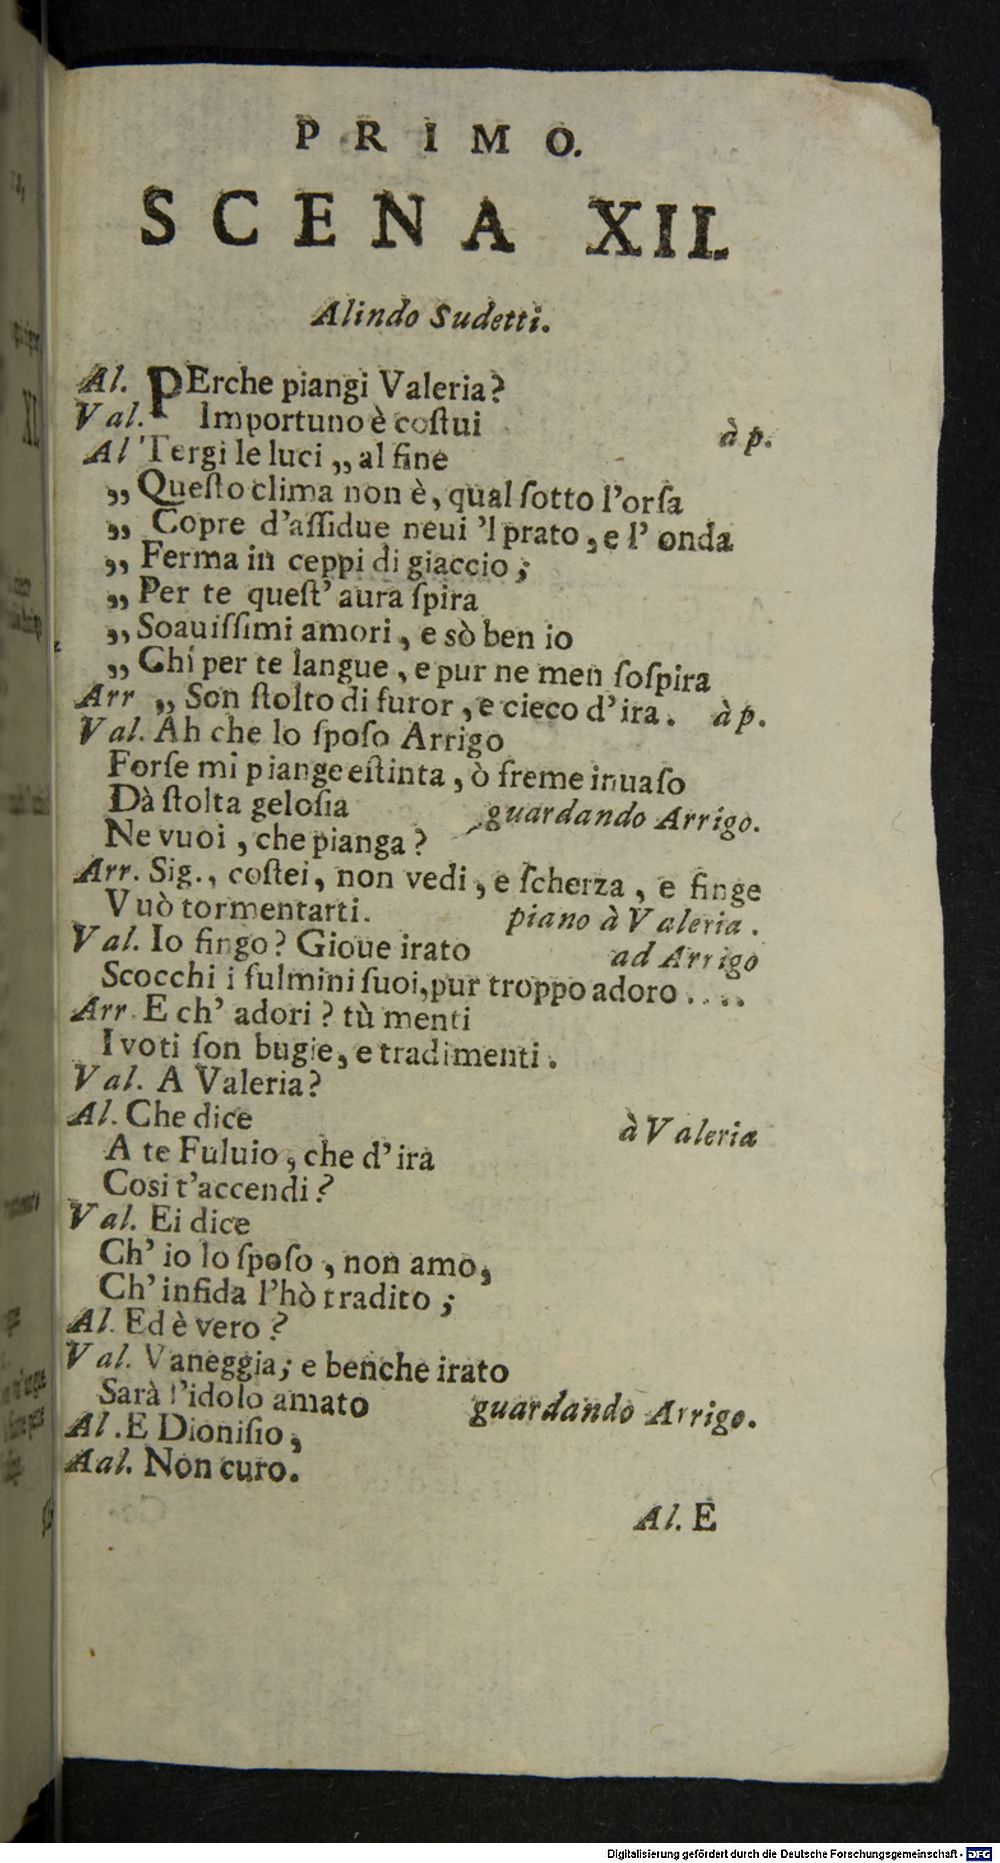 PRIMO.
SCENA XII.
Alindo Sudetti.
Al. PErche piangi Valeria?
Val. Importuno è coſtui à p.
Al Tergi le luci „ al fine
„ Queſto clima non è, qual ſotto l'orſa
„ Copre d'aſſidue neui 'l prato, e l' onda
„ Ferma in ceppi di giaccio;
„ Per te queſt' aura ſpira
„ Soauiſſimi amori, e sò ben io
„ Chi per te langue, e pur ne men ſoſpira
Arr „ Son ſtolto di furor, e cieco d'ira. à p.
Val. Ah che lo ſpoſo Arrigo
Forſe mi piange eſtinta, ò freme inuaſo
Dà ſtolta geloſia guardando Arrigo.
Ne vuoi, che pianga?
Arr. Sig., coſtei, non vedi, e ſcherza, e finge
Vuò tormentarti. piano à Valeria.
Val. Io fingo? Gioue irato ad Arrigo
Scocchi i fulmini ſuoi, pur troppo adoro....
Arr. E ch' adori? tù menti
I voti ſon bugie, e tradimenti.
Val. A Valeria?
Al. Che dice à Valeria
A te Fuluio, che d'ira
Cosi t'accendi?
Val. Ei dice
Ch' io lo ſpoſo, non amo,
Ch' infida l'hò tradito;
Al. Ed è vero?
Val. Vaneggia; e benche irato
Sarà l'idolo amato guardando Arrigo.
Al. E Dioniſio,
Aal. Non curo.
Al. E
Digitalisierung gefördert durch die Deutsche Forschungsgemeinschaft - DFG